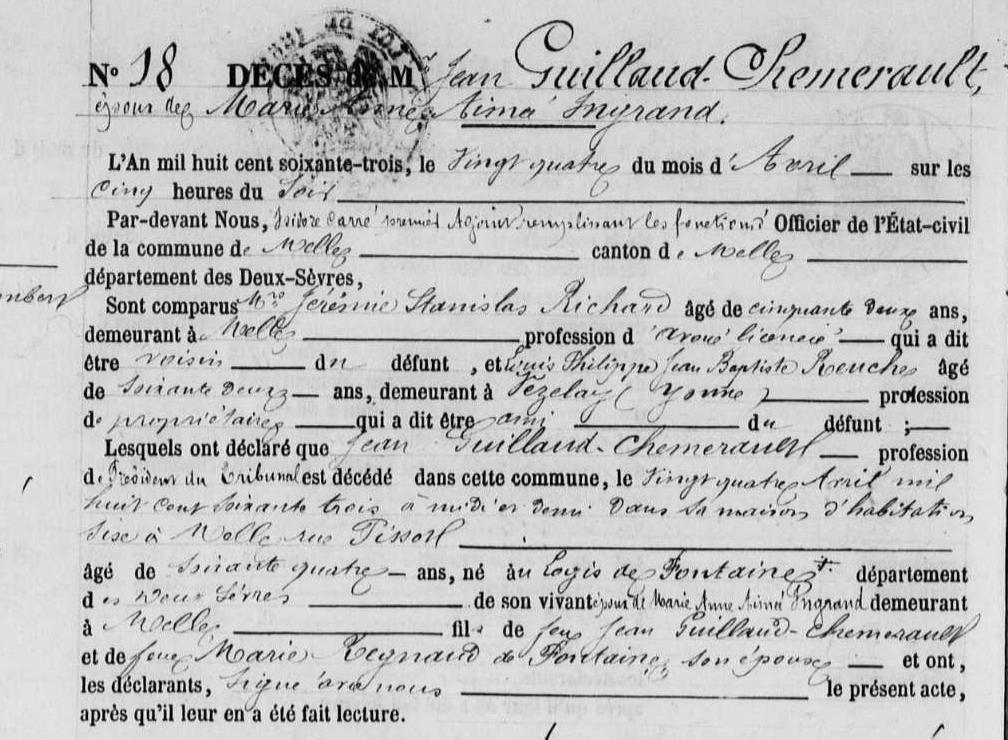 N.º 18 DÉCÈS de Mr Jean Guillaud-Chemerault,
époux de Marie Anne Aimé Ingrand.
L'An mil huit cent soixante-trois, le Vingt quatre du mois d'Avril sur les
cinq heures du Soir
Par-devant Nous, Isidore Carré premier Adjoint remplissant les fonctions Officier de l'État-civil
de la commune de Melle canton de Melle
département des Deux-Sèvres,
Sont comparus Mrs Jérémie Stanislas Richard âgé de cinquante deux ans,
demeurant à Melle profession d'avoué licencié qui a dit
être voisin du défunt, et Louis Philippe Jean Baptiste Reuche âgé
de Soixante deux ans, demeurant à Vézelay (Yonne) profession
de propriétaire qui a dit être ami du défunt ;
Lesquels ont déclaré que Jean Guillaud-Chemerault profession
de Président du Tribunal est décédé dans cette commune, le Vingt quatre Avril mil
huit cent soixante trois à midi et demi dans sa maison d'habitation
sise à Melle rue
âgé de Soixante quatre ans, né au Logis de Fontaine département
des Deux Sèvres de son vivant époux de Marie Anne Aimée Ingrand demeurant
à Melle fils de feu Jean Guillaud-Chemerault
et de feue Marie Regnaud de Fontaine son épouse et ont,
les déclarants, signé avec nous le présent acte,
après qu'il leur en a été fait lecture.